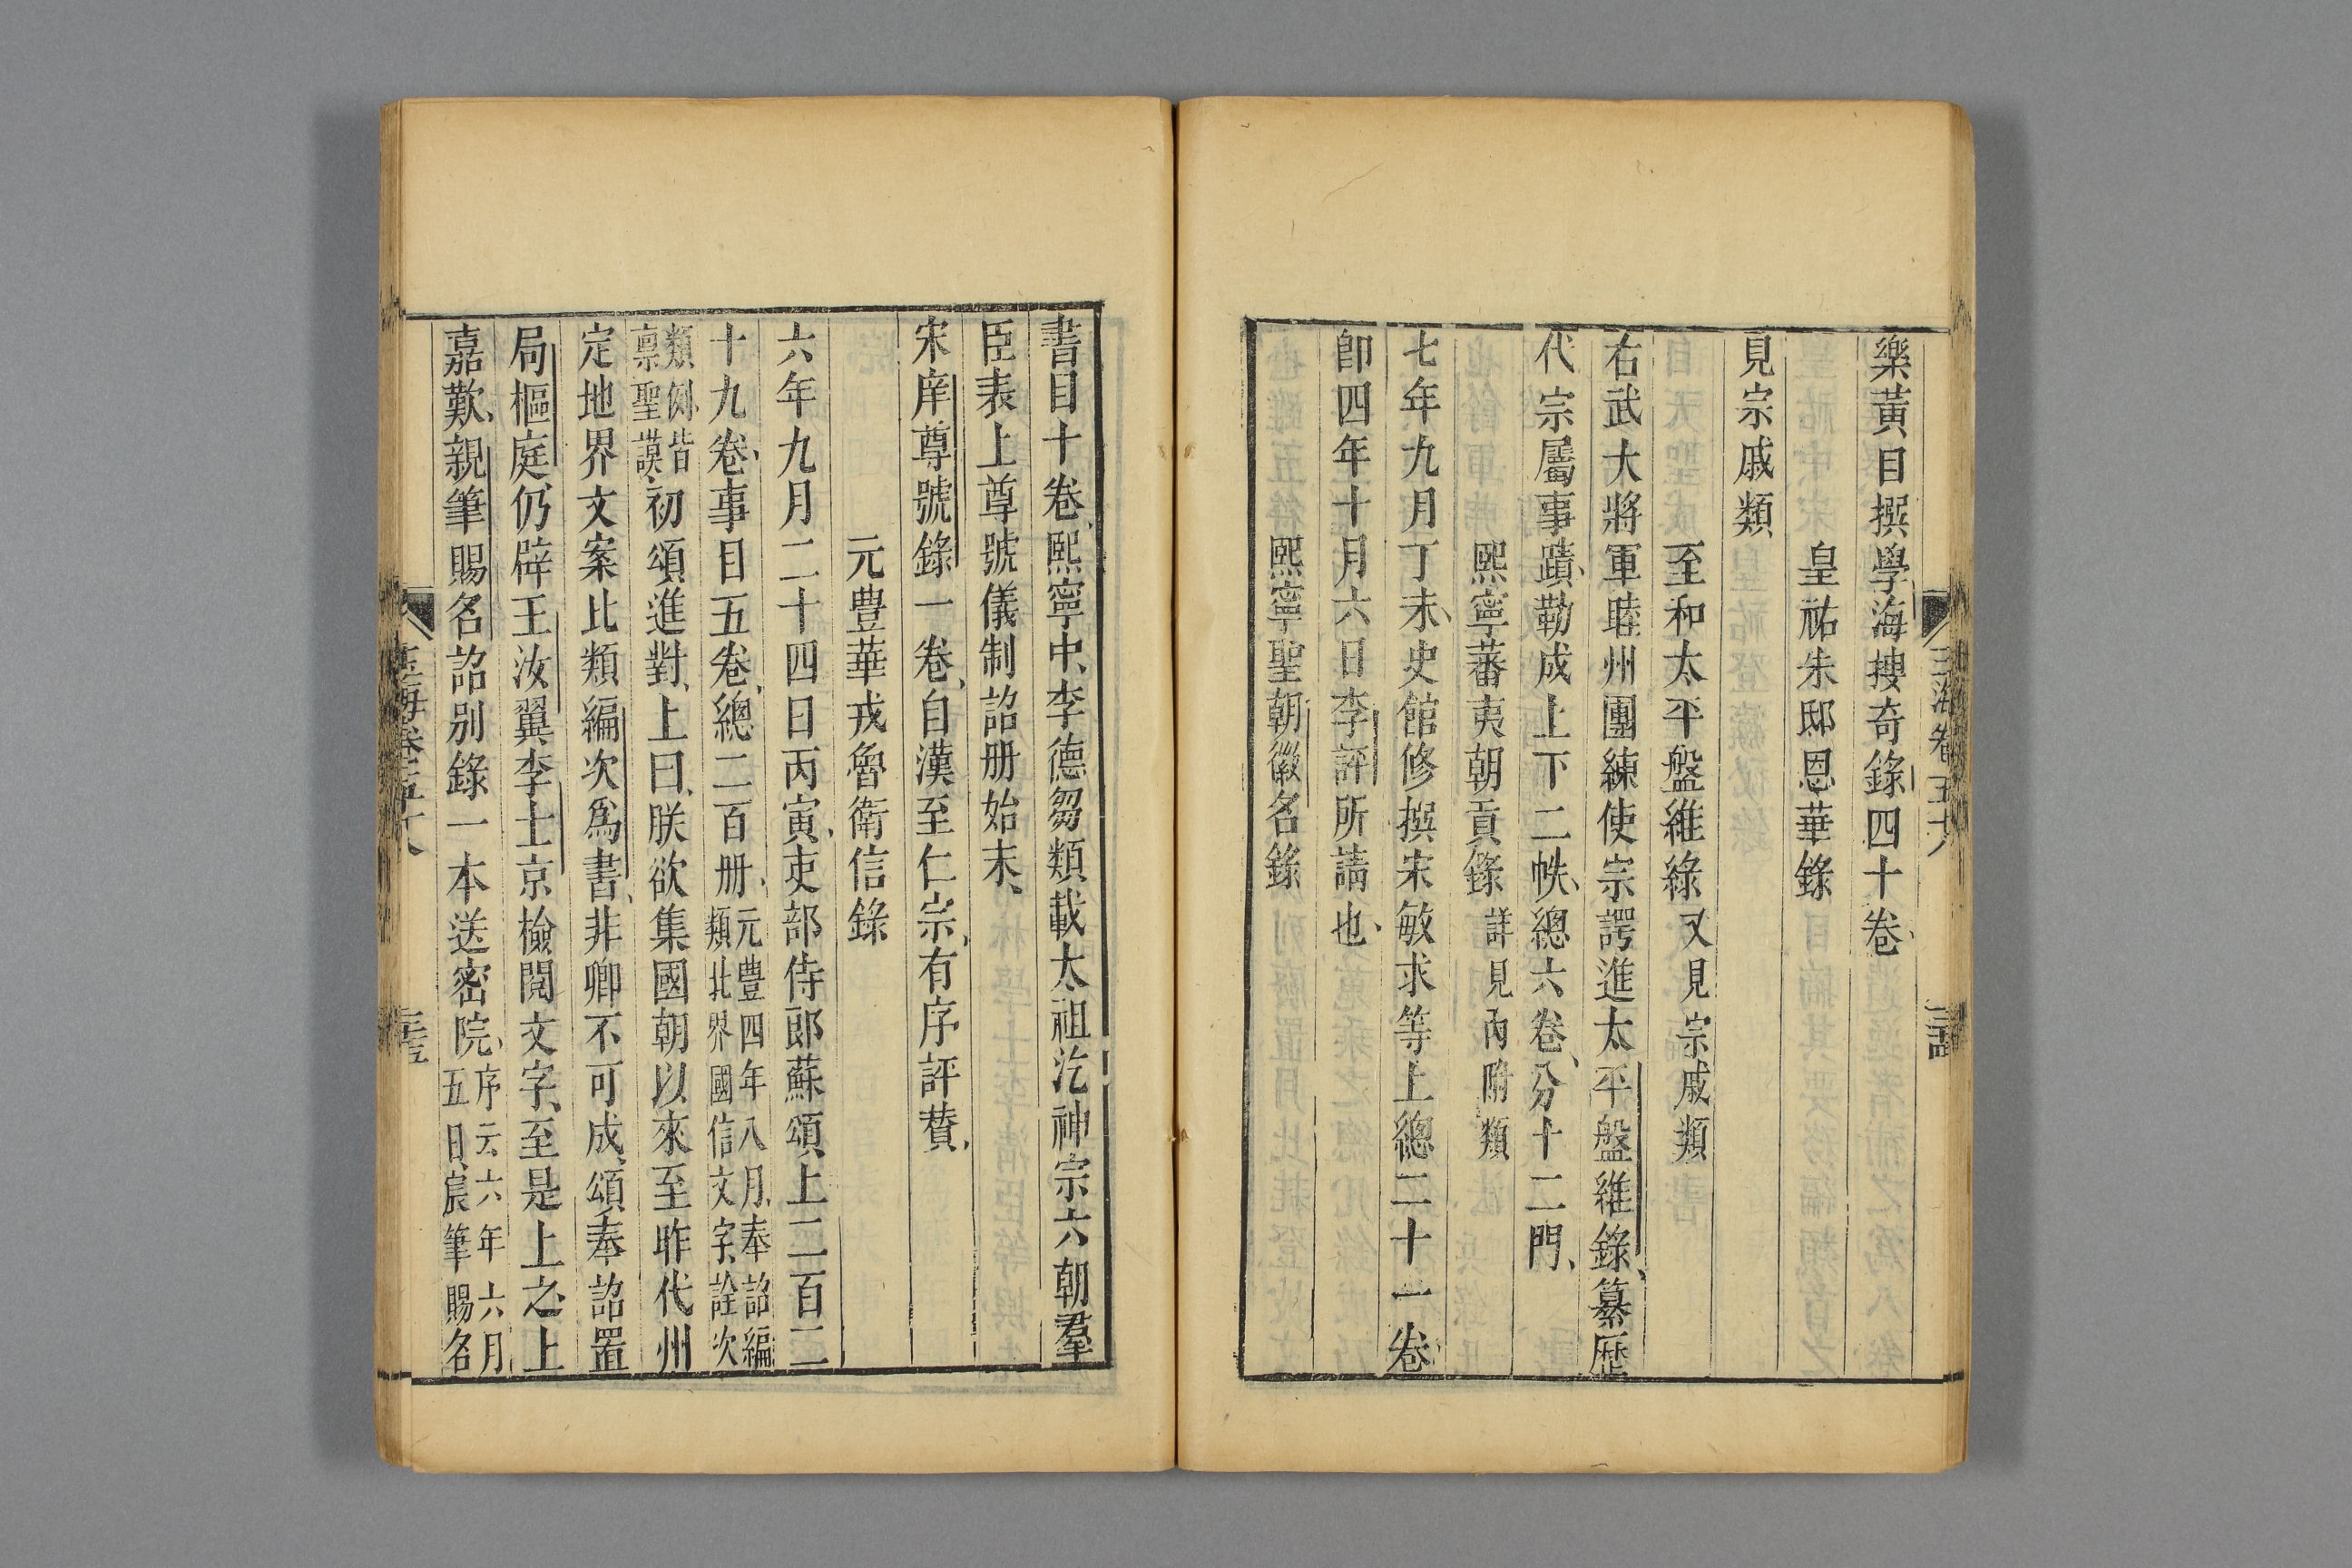 樂黃目撰學海搜奇錄四十卷、
皇祐朱邸恩華錄
見宗戚類
至和太平盤維錄又見宗戚類
右武大將軍睦州團練使宗諤進太平盤維錄、纂歷
代宗屬事蹟、勒成上下二帙、總六卷、分十二門、
熙寧蕃夷朝貢錄詳見內附類
七年九月丁未、史館修撰宋敏求等上總二十一卷、
卽四年十月六日李評所請也、
熙寧聖朝徽名錄
書目十卷、熙寧中、李德芻類載太祖汔神宗六朝羣
臣表上尊號儀制詔册始末、
宋庠尊號錄一卷、自漢至仁宗、有序評贊、
元豊華戎魯衛信錄
六年九月二十四日丙寅、吏部侍郎蘇頌、上二百二
十九卷、事目五卷、總二百册、元豊四年八月、奉詔編
類北界國信文字、詮次
類例、皆
禀聖謨、初頌進對、上曰、朕欲集國朝以來至昨代州
定地界文案比類編次爲書、非卿不可成、頌奉詔置
局樞庭、仍辟王汝翼、李士京檢閱文字、至是上之、上
嘉歎、親筆賜名、詔别錄一本送密院、序云六年六月
五日、宸筆賜名
玉海卷五十八